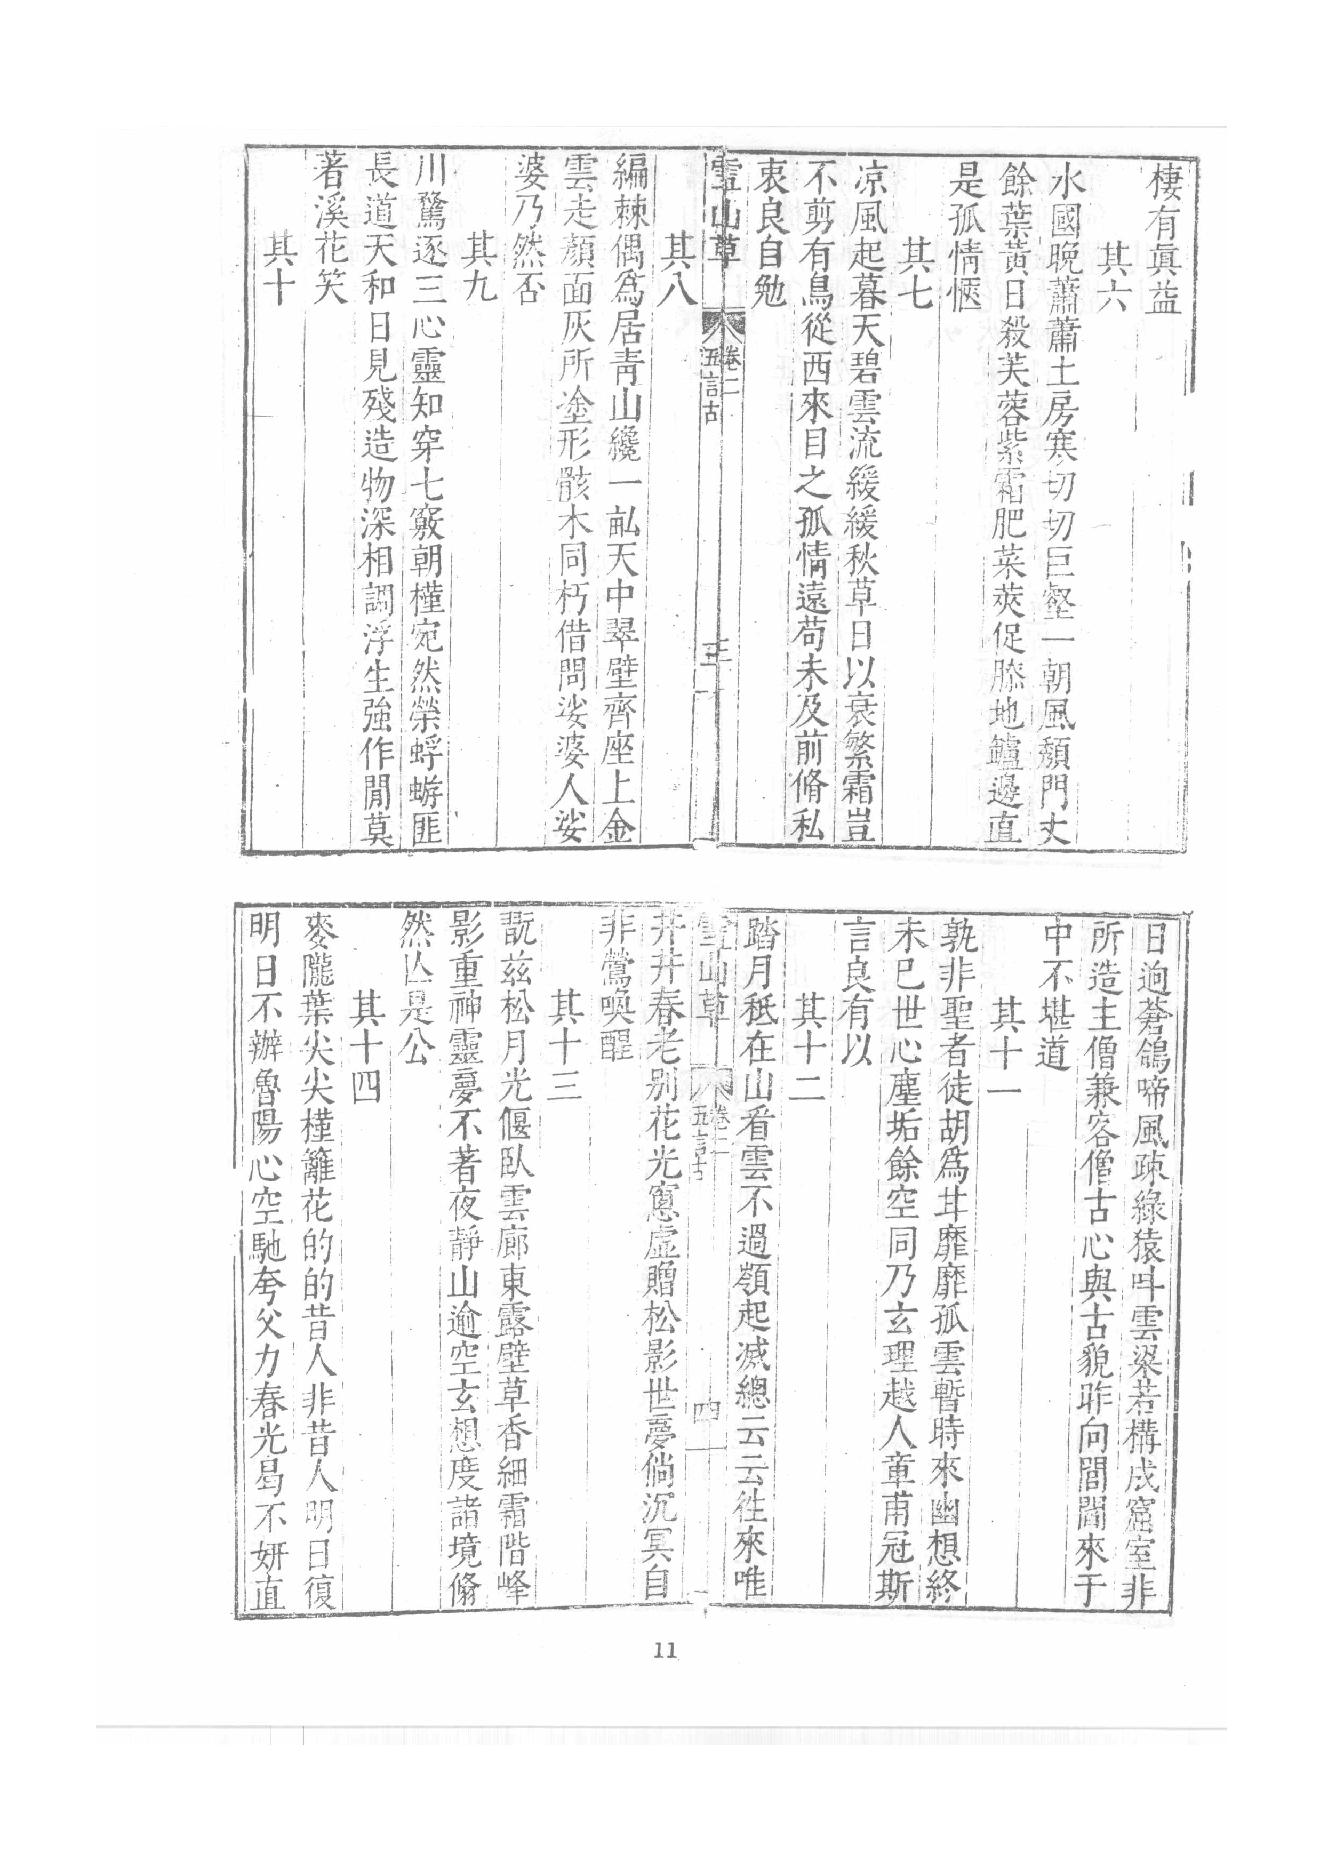 棲有眞益
其六
水國晩蕭蕭土房寒切切巨壑一朝風頹門丈
餘葉黃日殺芙蓉紫霜肥菜莢促膝地鑪邊直
是孤情愜
其七
凉風起暮天碧雲流緩緩秋草日以衰繁霜豈
不剪有鳥從西來目之孤情遠苟未及前脩私
衷良自勉
雪山草
卷二
五言古
三
其八
編棘偶爲居靑山纔一畝天中翠壁齊座上金
雲走顏面灰所塗形骸木同朽借問娑婆人娑
婆乃然否
其九
川騖逐三心靈知穿七竅朝槿宛然榮蜉蝣匪
長道天和日見殘造物深相調浮生強作閒莫
著溪花笑
其十
日逈蒼鴿啼風疎綠猿呌雲梁若構成窟室非
所造主僧兼客僧古心與古貌昨向閶閶來于
中不堪道
其十一
孰非聖者徒胡爲甘靡靡孤雲暫時來幽想終
未已世心塵垢餘空同乃玄理越人章甫冠斯
言良有以
其十二
踏月秪在山看雲不過嶺起滅總云云徃來唯
雪山草
卷二
五言古
四
井井春老別花光窻虛贈松影世夢倘沉冥自
非鶯喚醒
其十三
翫兹松月光偃臥雲廊東露壁草香細霜階峰
影重神靈夢不著夜靜山逾空玄想度諸境翛
然亾是公
其十四
麥隴葉尖尖槿籬花的的昔人非昔人明日復
明日不辦魯陽心空馳夸父力春光曷不妍直
11